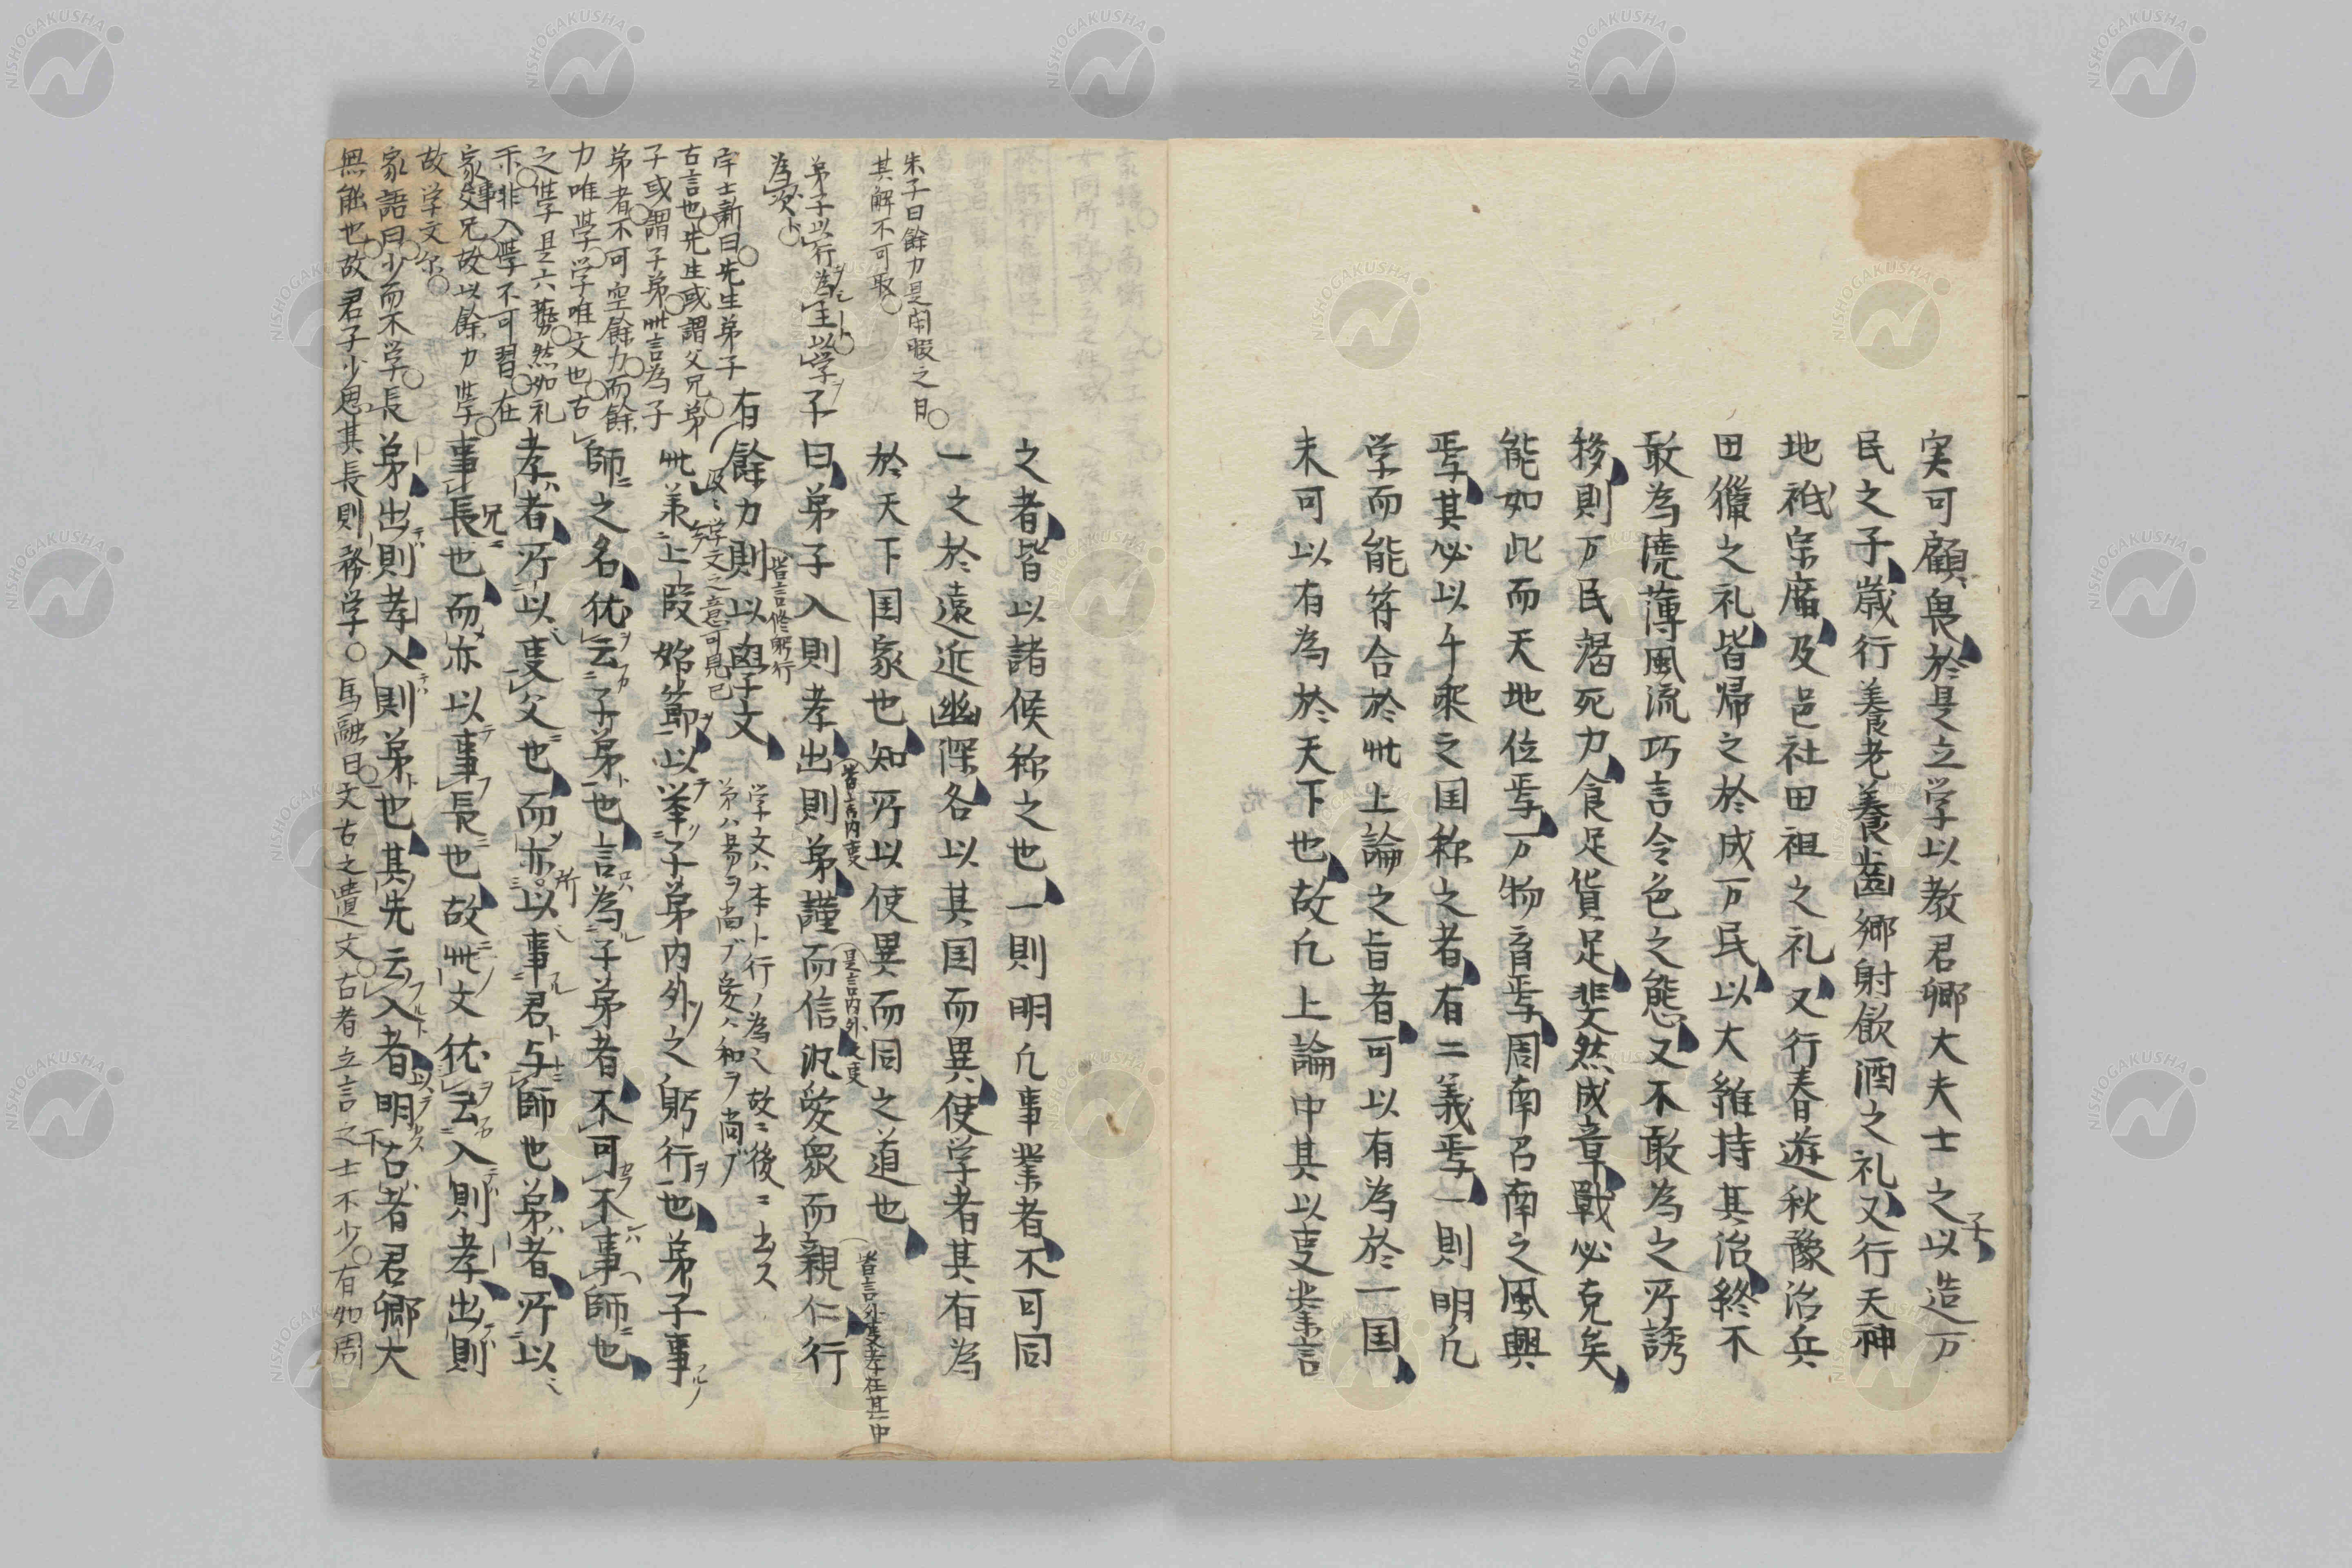 実可顧畏於是立学以教君卿大夫士之子以造万
民之子歳行養老養歯郷射飲酒之礼又行天神
地祇宗廟及邑社田祖之礼又行春遊秋豫治兵
田獵之礼皆帰之於成万民以大維持其治終不
敢為澆薄風流巧言令色之態又不敢為之所誘
移則万民竭死力食足貨足斐然成章戰必克矣
能如此而天地位焉万物育焉周南召南之風興
焉其必以千乘之国称之者有二義焉一則明凡
学而能符合於此上論之旨者可以有為於一国
未可以有為於天下也故凡上論中其以事業言
之者皆以諸侯称之也一則明凡事業者不可同
一之於遠近幽深各以其国而異使学者其有為
於天下国家也知所以使異而同之道也
子曰弟子入則孝出則弟謹而信汎愛衆而親仁行
有餘力則以学文
此兼上段始節以挙子弟内外之躬行也弟子事
師之名犹云子弟也言為子弟者不可不事師也
孝者所以事父也而亦所以事君与師也弟者所以
事兄長也而亦以事長也故此文犹云入則孝出則
弟出則孝入則弟也其先云入者以明古者君卿大
朱子曰餘力是閑暇之日
其解不可取
弟子以行為主以学
為次ト
宇士新曰先生弟子
古言也先生或謂父兄弟
子或謂子弟此言為子
弟者不可空餘力而餘
力唯学学唯文也古
之学是六藝然如礼
楽非入学不可習在
家事父兄故以餘力学
故学文尓
家語曰少而不学長
無能也故君子少思其長則務学
馬融曰文古之遺文古者立言之士不少有如周
皆言内事
是言内外之事
皆言外事孝在其中
皆言修躬行
学文之意可見已
学文ハ本ト行ノ為ニ故ニ後ニ出ス
弟ハ易ヲ尚ブ愛ハ和ヲ尚ブ